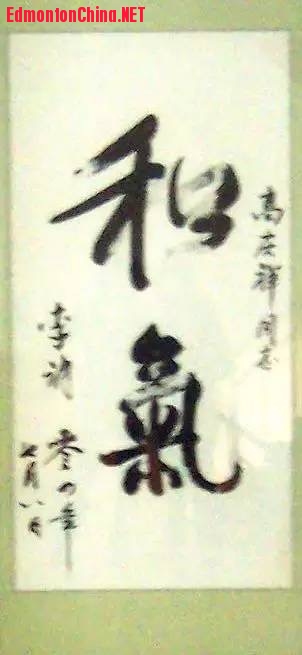 EdmontonChina.NET
高庆祥同志
和氣
李湖
零四年
七月八日